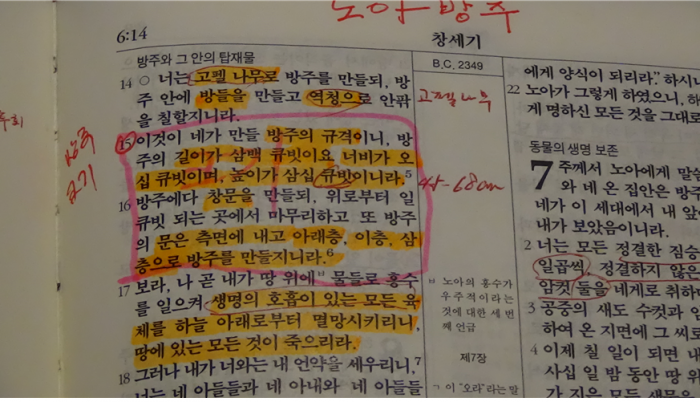 노아-방주
6:14
창세기
방주와 그 안의 탑재물
14 ○ 너는 고펠 나무로 방주를 만들되, 방
주 안에 방들을 만들고 역청으로 안팎
을 칠할지니라.
15 이것이 네가 만들 방주의 규격이니, 방
주의 길이가 삼백 큐빗이요 너비가 오
십 큐빗이며, 높이가 삼십 큐빗이니라.5
16 방주에다 창문을 만들되, 위로부터 일
큐빗 되는 곳에서 마무리하고 또 방주
의 문은 측면에 내고 아래층, 이층, 삼
층으로 방주를 만들지니라.6
17 보라, 나 곧 내가 땅 위에 물들로 홍수
를 일으켜 생명의 호흡이 있는 모든 육
체를 하늘 아래로부터 멸망시키리니,
땅에 있는 모든 것이 죽으리라.
18 그러나 내가 너와는 내 언약을 세우리니,7
너는 네 아들들과 네 아내와 네 아들들
B.C. 2349
고펠나무
노아의 홍수가
우주적이라는
것에 대한 세 번
째 언급
제7장
ㄱ 이 "오라"라는 말
에게 양식이 되리라." 하시니
22 노아가 그렇게 하였으니, 하
게 명하신 모든 것을 그대로
동물의 생명 보존
7 주께서 노아에게 말씀
와 네 온 집안은 방주
네가 이 세대에서 내 앞
내가 보았음이니라.
2 너는 모든 정결한 짐승
일곱씩, 정결하지 않은
암컷 둘을 네게로 취하
3 공중의 새도 수컷과 암
하여 온 지면에 그 씨로
4 이제 칠 일이 되면 내
사십 일 밤 동안 땅 위
가 지은 모든 생물을